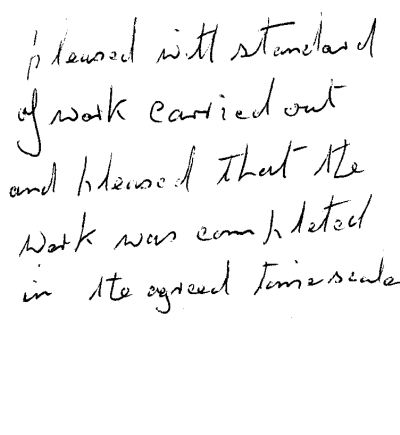 pleased with standard
of work carried out
and pleased that the
work was completed
in the agreed timescale